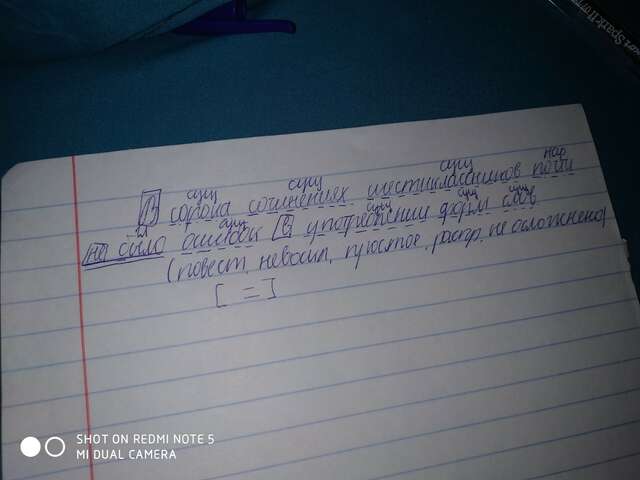 сущ сущ сущ нар
В сорока сочинениях шестиклассников почти
гл сущ сущ сущ сущ
не было ошибок в употреблении форм слов
(повест, невоскл, простое, распр, не осложнено)
[ = ]
SHOT ON REDMI NOTE 5
MI DUAL CAMERA